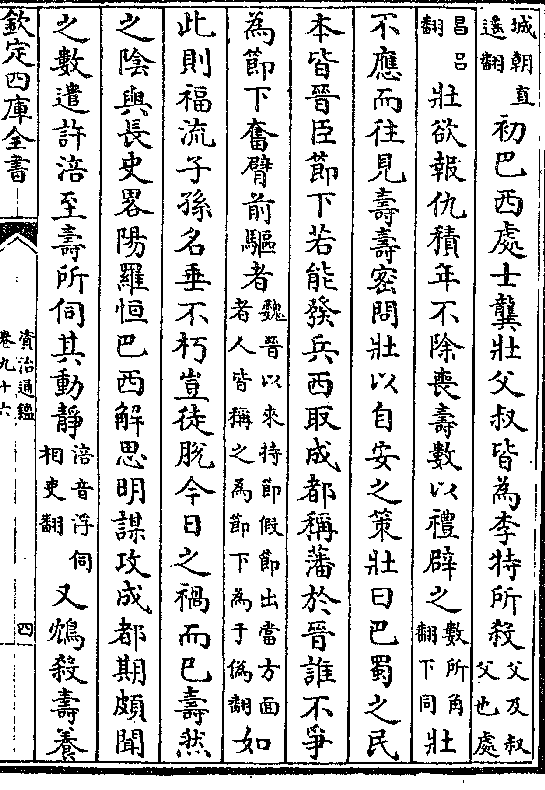 城朝直
遥翻
初巴西處士龔壯父叔皆為李特所殺
父及叔
父也處
昌呂
翻
壯欲報仇積年不除喪壽數以禮辟之
數所角
翻下同
壯
不應而往見壽壽密問壯以自安之策壯曰巴蜀之民
本皆晉臣節下若能發兵西取成都稱藩於晉誰不爭
為節下奮臂前驅者
魏晉以來持節假節出當方面
者人皆稱之為節下為于偽翻
如
此則福流子孫名垂不朽豈徒脫今日之禍而已壽然
之陰與長史畧陽羅恒巴西解思明謀攻成都期頗聞
之數遣許涪至壽所伺其動靜
涪音浮伺
相吏翻
又鴆殺壽養
欽定四庫全書
資治通鑑
卷九十六
四